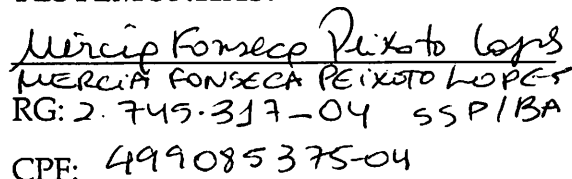 TESTEMUNHAS:
Mércia Fonseca Peixoto Lopes
MERCIA FONSECA PEIXOTO LOPES
RG: 2.745.317-04 SSP/BA
CPF: 499085375-04